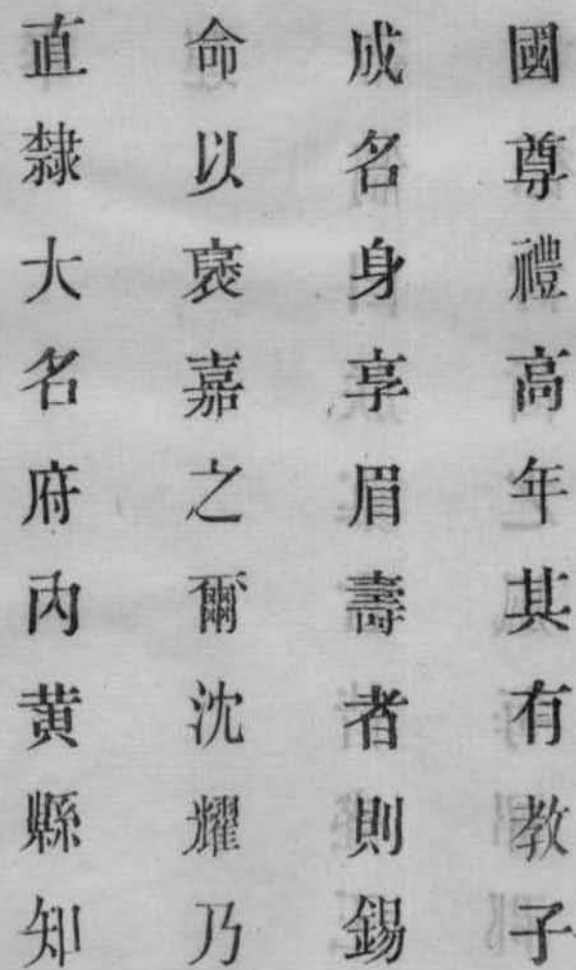 國尊禮高年其有教子
成名身享眉壽者則錫
命以褒嘉之爾沈耀乃
直隸大名府内黄縣知